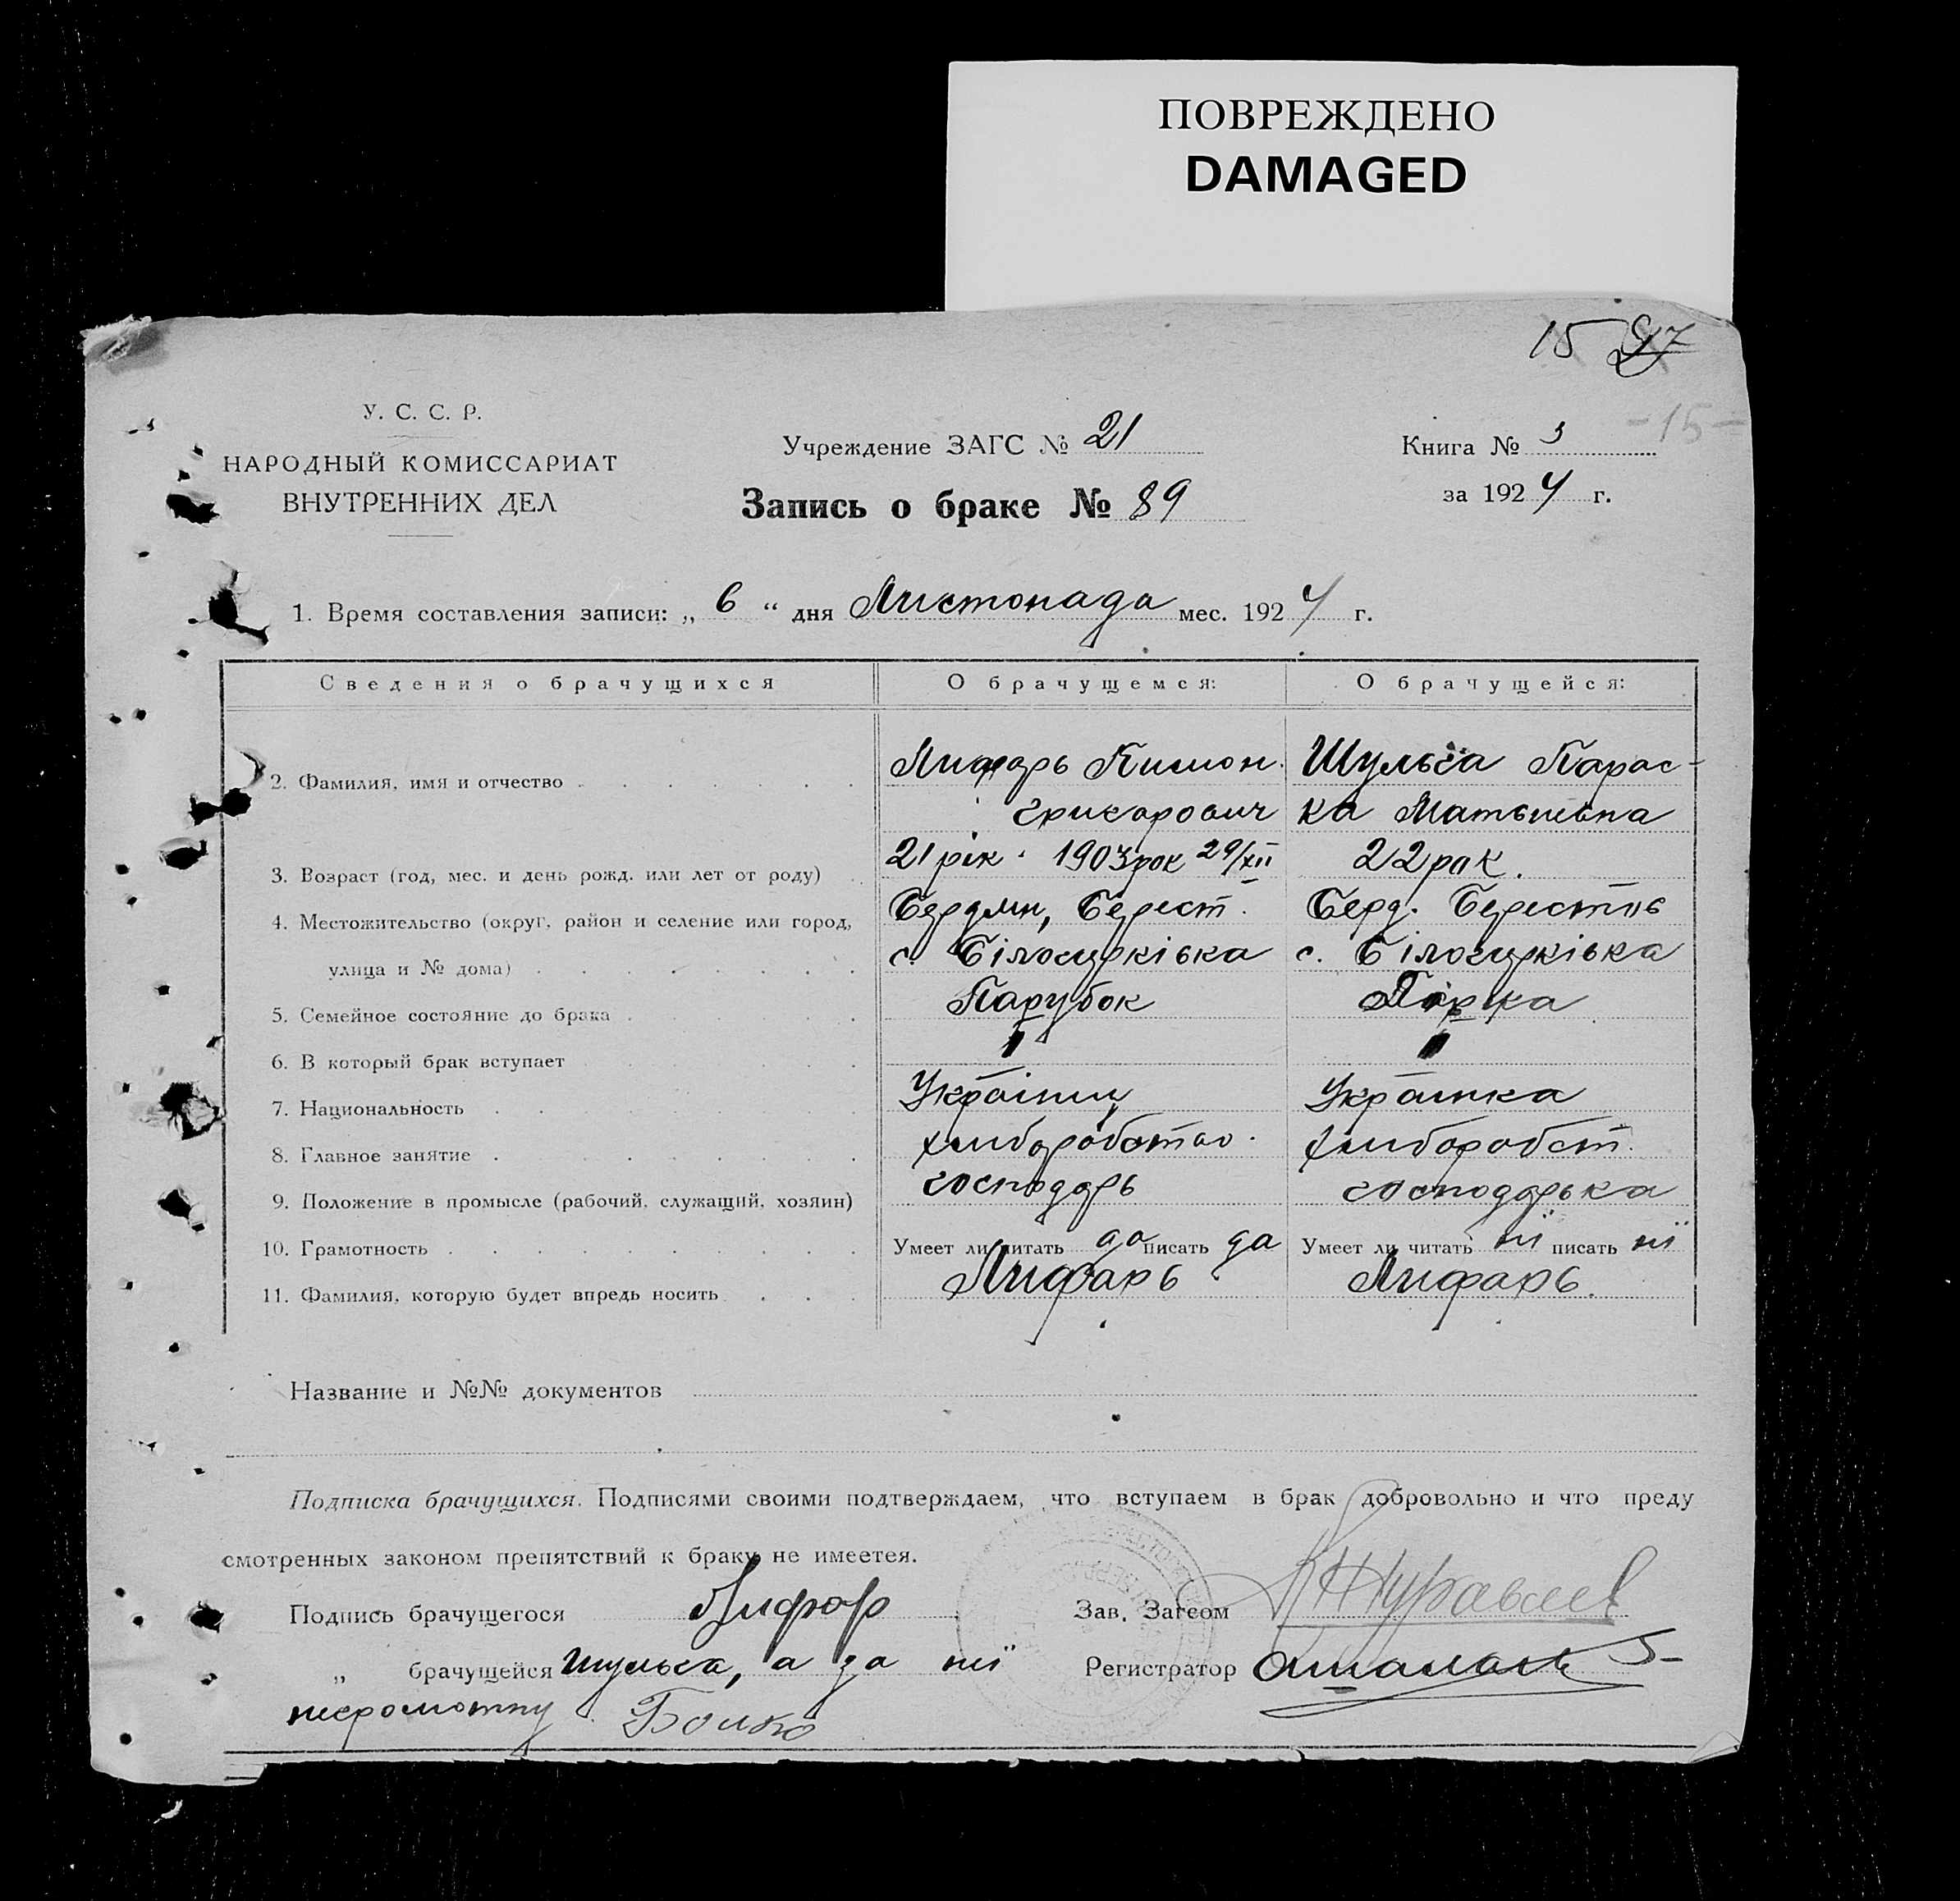 ПОВРЕЖДЕНО
DAMAGED
15
-15-
У. С. С. Р.
НАРОДНЫЙ КОМИССАРИАТ
ВНУТРЕННИХ ДЕЛ
Учреждение ЗАГС № 21
Запись о браке № 89
Книга № 3
за 1924 г.
1. Время составления записи: „ 6 “ дня Листопада мес. 1924 г.
Сведения о брачущихся О брачущемся: О брачущейся:
2. Фамилия, имя и отчество Лифарь Пимон Шульга Парас-
григорович ка Матвіевна
3. Возраст (год, мес. и день рожд. или лет от роду) 21 рік 1903 рок 29/XII 22 рок.
4. Местожительство (округ, район и селение или город, Бердян, Берест. Берд. Берестов
улица и № дома) с. Білоцерківка с. Білоцерківка
5. Семейное состояние до брака Парубок
6. В который брак вступает
7. Национальность Українец Українка
8. Главное занятие хлиборобство. хлиборобст.
9. Положение в промысле (рабочий, служащий, хозяин) господарь господарька
10. Грамотность Умеет ли читать да писать да Умеет ли читать ні писать ні
11. Фамилия, которую будет впредь носить Лифарь Лифарь.
Название и №№ документов
Подписка брачущихся. Подписями своими подтверждаем, что вступаем в брак добровольно и что преду
смотренных законом препятствий к браку не имеетея.
Подпись брачущегося Лифар Зав. Загсом Журавлев
„ брачущейся Шульга, а за ніі Регистратор
неграмотну Бойко